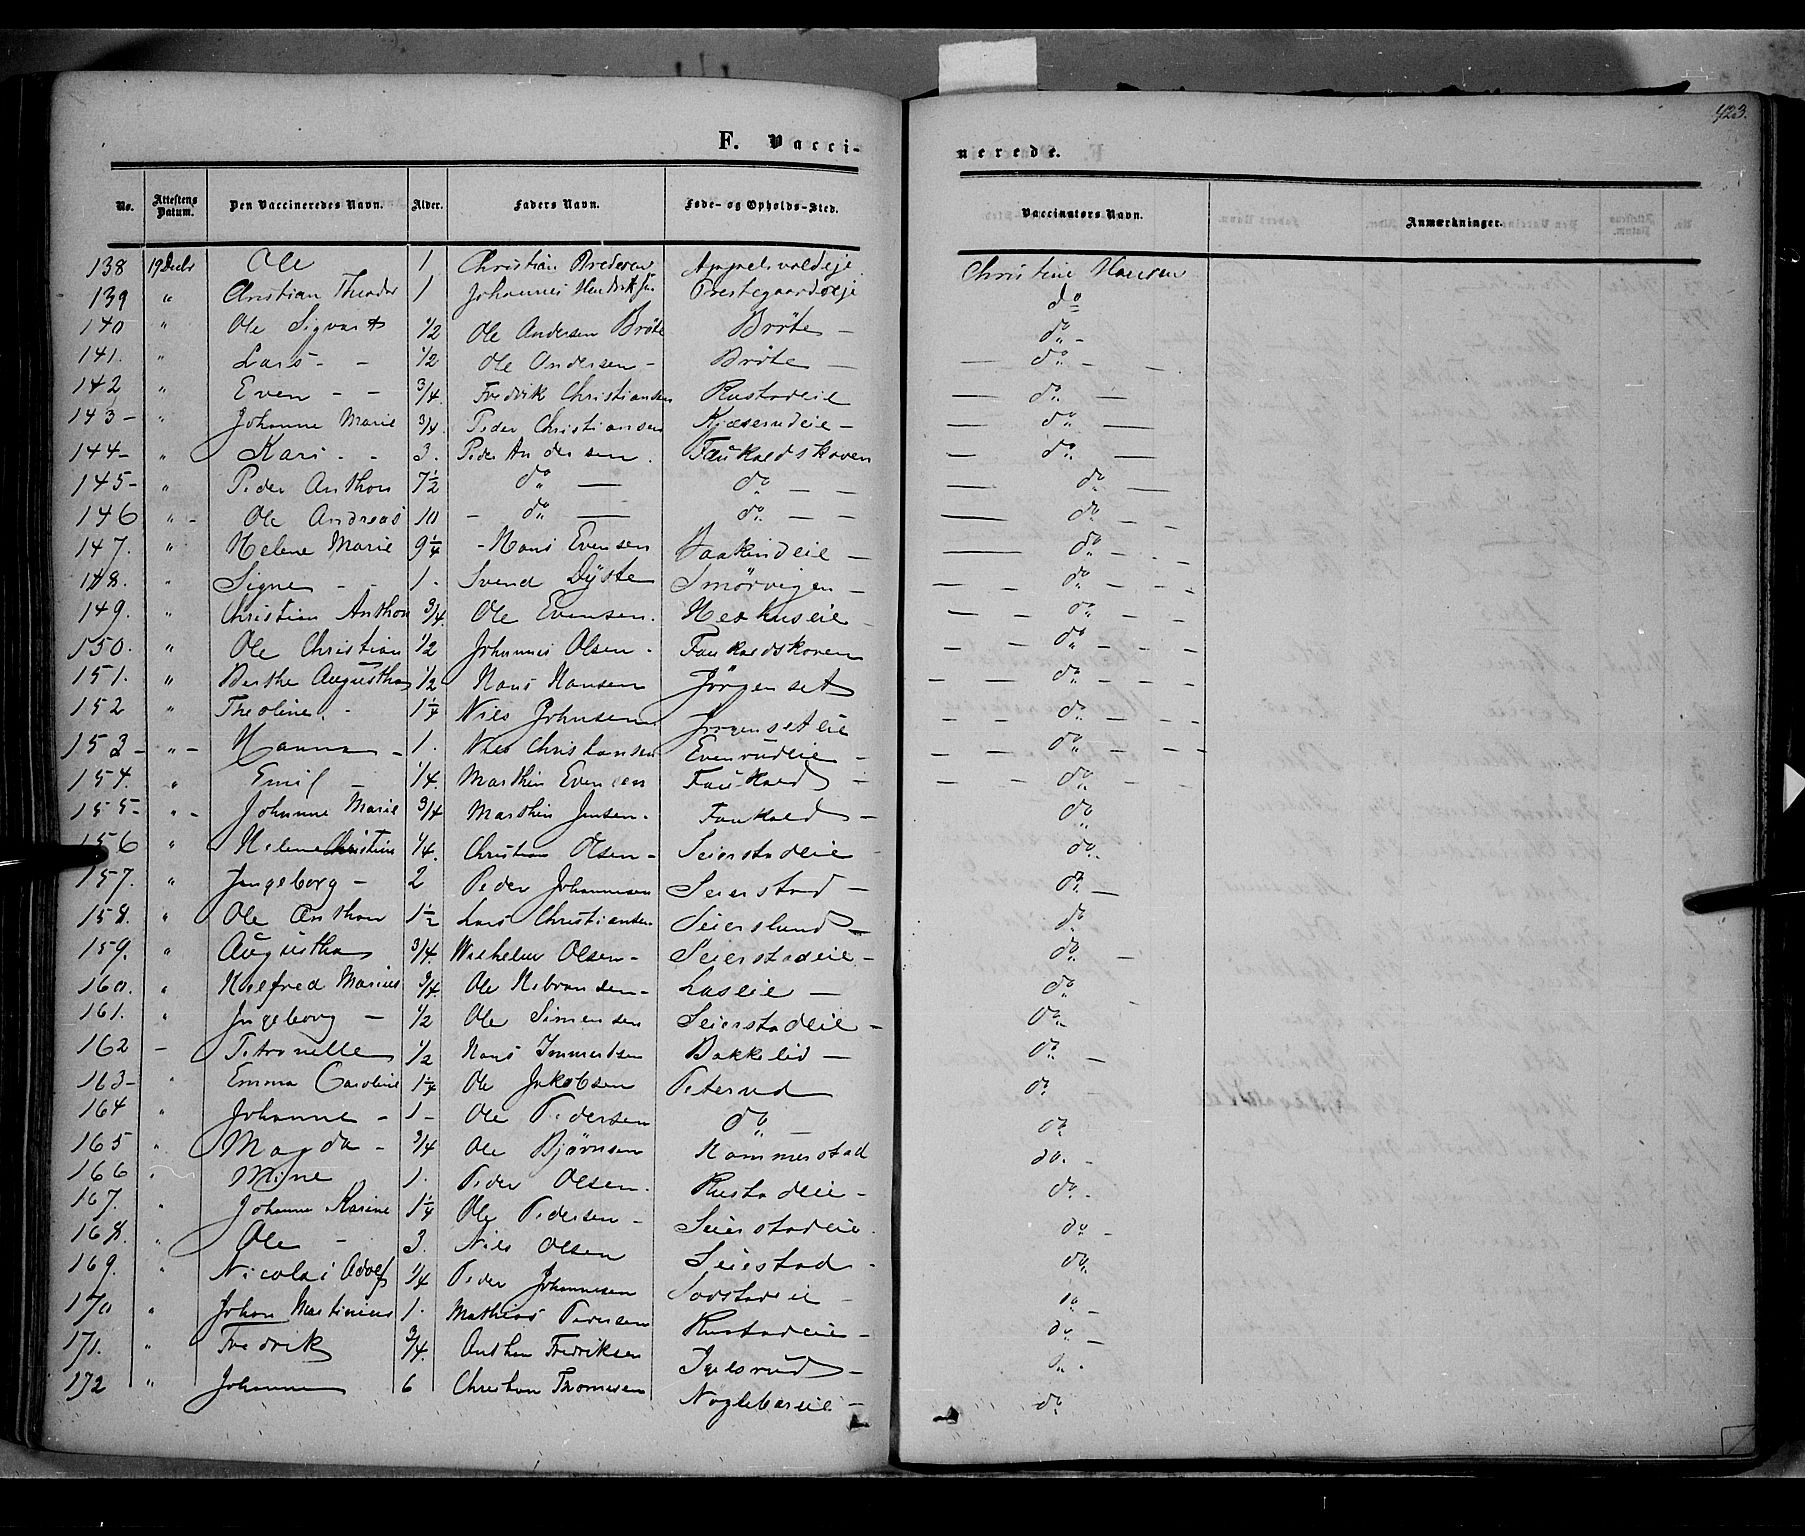 423.
F. Vacci-
nerede.
No. Attestens Datum. Den Vaccineredes Navn. Alder. Faders Navn. Føde- og Opholds-Sted. Vaccinators Navn. Anmærkninger.
138 19 Decbr Ole 1 Christian Bredesen Christine Hansen
139 " Christian Theodor 1 Johannes Præstegaardseje do
140 " Ole Sigvart 1/2 Ole Andersen Bröte Bröte - do -
141. " Lars - - 1/2 Ole Andersen - Bröte - - do - -
142 " Even - - 3/4. Fredrik Christiansen Rustadeie - do. -
143 - " Johanne Marie 3/4. Peder Christiansen Kjæserudeie - - do -
144 - " Kari - - 3. Peder Andersen. Faukaldskoven - do. -
145 - " Peder Anthon 7 1/2 do - do - - - do -
146 " - Ole Andreas 10 - do - do - - - do -
147. " Helene Marie 9 1/4 - Hans Evensen - - do - -
148. " Signe - - 1. Svend Dyste Smörvigen - - do - -
149. " Christian Anthon 3/4. Ole Evensen. - - do - -
150. " Ole Christian 1/2 Johannes Olsen - Faukaldskoven - - do - - -
151. " Berthe Augustha 1/2 Hans Hansen Jörgenset - - - do - - -
152 " Theoline. - 1 1/4 Niels Johnsen Jörgenseteie - - do - -
153 - " - Hanna - 1. Niels Christiansen Evenrudeie - - - do - - -
154. " Emil - 1/4. Marthin Evensen Faukald - - - do -
155 - " - Johanne Marie 3/4 Marthin Jensen - Faukald - do
156 " Helene Christine 1/4. Christian Olsen - Seierstadeie - do.
157. " Ingeborg - 2 Peder Johannesen Seierstad - do. -
158. " Ole Anthon 1 1/2 Lars Christiansen Seierslund - do.
159. " Augustha 3/4. Wilhelm Olsen - Seierstadeie - do. -
160. " Halfred Marius 3/4. Ole Hebransen - Laseie - do
161. " Ingeborg - 1/2 Ole Simensen Seierstadeie - do.
162 - Petronelle 1/2 Hans Bakkelid - do. -
163 - " Emma Caroline 1 1/4 Ole Jakobsen Peterud do.
164 " Johanne - 1 - Ole Pedersen do - do.
165 " Magda - 3/4 Ole Bjørnsen Hammerstad do. -
166 " Mine 1. Peder Olsen. Rustadeie - do. -
167. " Johanne Karine 1 1/4 Ole Pedersen - Seierstadeie. do. -
168. " Ole - 3. Niels Olsen Seiestad - do.
169. " Nicolai Adolf 1/4 Peder Johannesen Sorstadeie - do -
170 " Johan Martinius 1. Mathias Pedersen Rustadeie - do. -
171. " Fredrik 3/4. Anthon Fredriksen Igelsrud - do. -
172 " Johanne 6 Christian Thomesen Noglebareie - do.